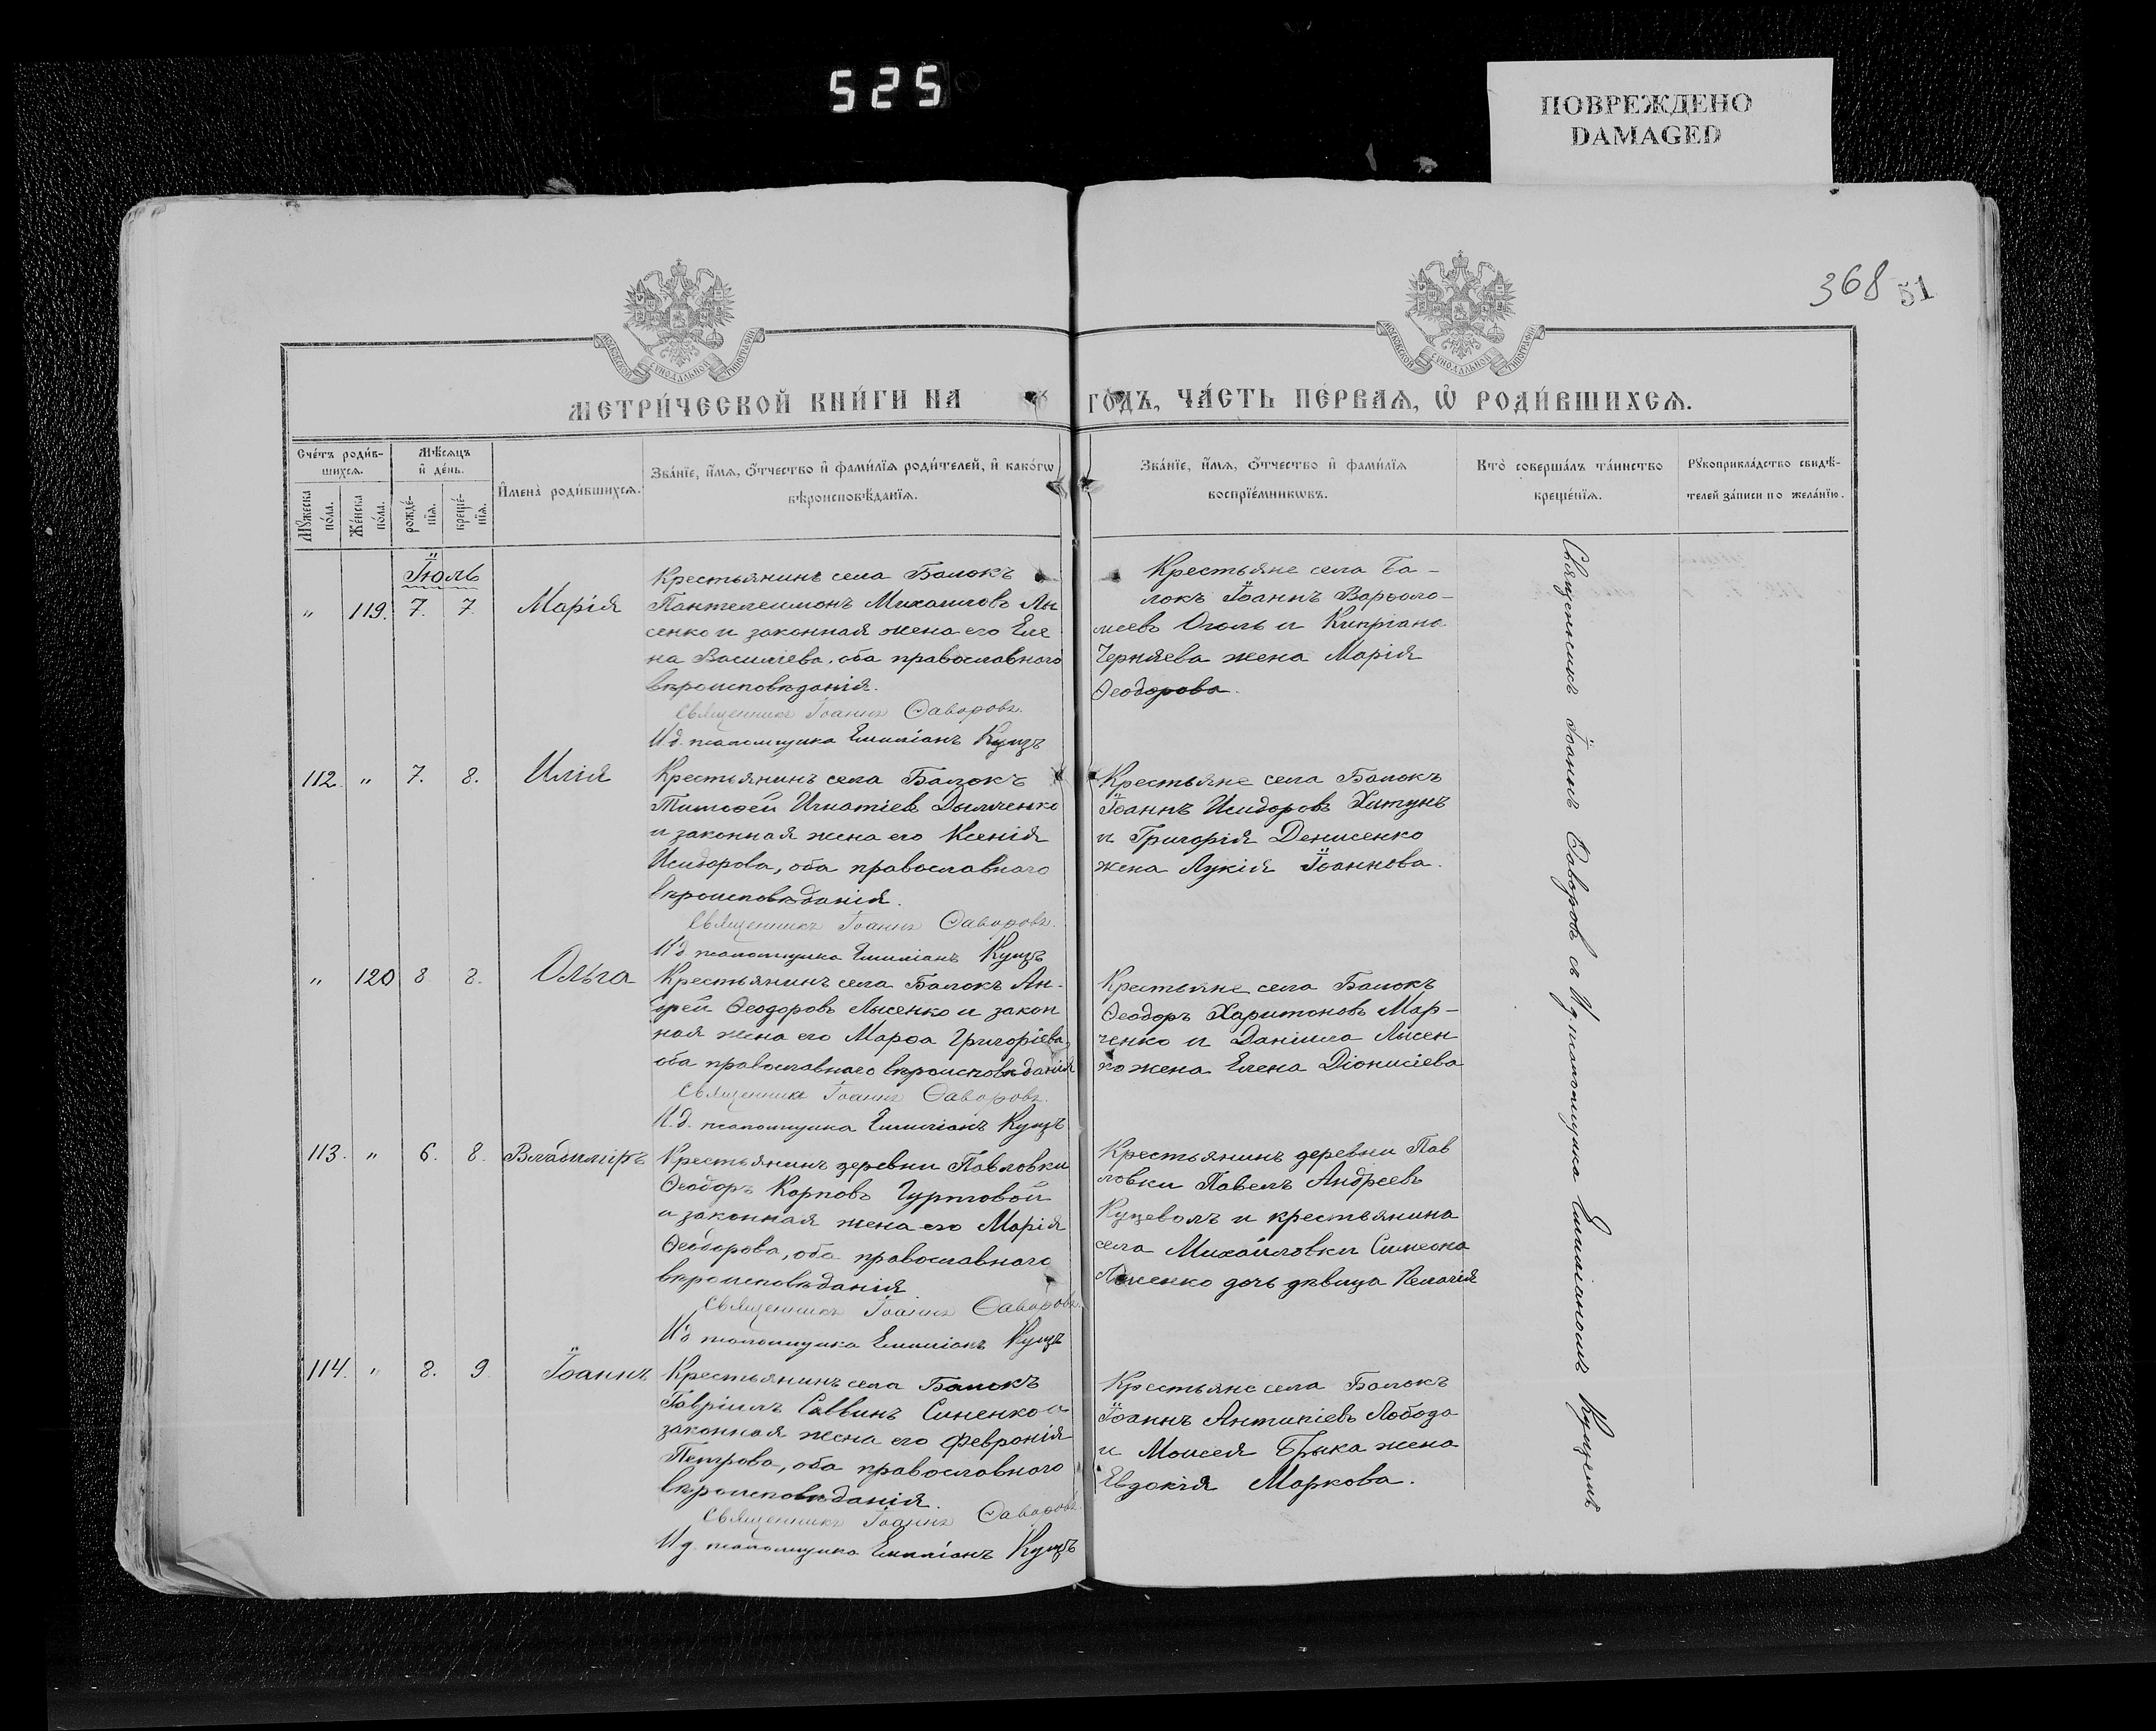 525
ПОВРЕЖДЕНО
DAMAGED
368 51
МОСКОВСКОЙ СУНОДАЛЬНОЙ ТИПОГРАФІИ
МОСКОВСКОЙ СУНОДАЛЬНОЙ ТИПОГРАФІИ
МЕТРИ́ЧЕСКОЙ КНИ́ГИ НА ГО́ДЪ, ЧА́СТЬ ПЕ́РВАѦ, Ѡ҆ РОДИ́ВШИХСѦ.
Сче́тъ роди́в-
шихсѧ.
Мѣ́сѧцъ
и҆ де́нь.
Мꙋ́жеска
по́ла.
Же́нска
по́ла.
рожде́-
нїѧ.
креще́-
нїѧ.
И҆мена̀ роди́вшихсѧ.
Зва́нїе, и҆́мѧ, ѻ҆́тчество и҆ фами́лїѧ роди́телей, и҆ како́гѡ
вѣроисповѣ́данїѧ.
Зва́нїе, и҆́мѧ, ѻ҆́тчество и҆ фами́лїѧ
воспрїе́мникѡвъ.
Кто̀ соверша́лъ та́инство
креще́нїѧ.
Рꙋкоприкла́дство свидѣ́-
телей за́писи по жела́нїю.
Іюль
" 119. 7. 7. Марія
Крестьянинъ села Балокъ
Пантелеимонъ Михаиловъ Лы
сенко и законная жена его Еле
на Василіева, оба православнаго
вѣроисповѣданія.
Священникъ Іоаннъ Ѳаворовъ.
И.д. псаломщика Емиліанъ Куцъ
Крестьяне села Ба-
локъ Іоаннъ Варѳоло-
меевъ Оголь и Кипріана
Черняева жена Марія
Ѳеодорова.
112. " 7. 8. Илія
Крестьянинъ села Балокъ
Тимоѳей Игнатіевъ Дымченко
и законная жена его Ксенія
Исидорова, оба православнаго
вѣроисповѣданія.
Священникъ Іоаннъ Ѳаворовъ.
И.д псаломщика Емиліанъ Куцъ
Крестьяне села Балокъ
Іоаннъ Исидоровъ Хатунъ
и Григорія Денисенко
жена Лукія Іоаннова.
" 120 8 8. Ольга
Крестьянинъ села Балокъ Ан-
дрей Ѳеодоровъ Лысенко и закон
ная жена его Марѳа Григоріева,
оба православнаго вѣроисповѣданія
Священникъ Іоаннъ Ѳаворовъ.
И.д. псаломщика Емиліанъ Куцъ
Крестьяне села Балокъ
Ѳеодоръ Харитоновъ Мар-
ченко и Даніила Лысен
ко жена Елена Діонисіева
113. " 6. 8. Владиміръ
Крестьянинъ деревни Павловки
Ѳеодоръ Карповъ Гуртовой
и законная жена его Марія
Ѳеодорова, оба православнаго
вѣроисповѣданія
Священникъ Іоаннъ Ѳаворовъ.
И.д псаломщика Емиліанъ Куцъ
Крестьянинъ деревни Пав
ловки Павелъ Андреевъ
Куцеволъ и крестьянина
села Михайловки Симеона
Лысенко дочь дѣвица Пелагія
114. " 8. 9 Іоаннъ
Крестьянинъ села Балокъ
Гавріилъ Саввинъ Синенко и
законная жена его Февронія
Петрова, оба православнаго
вѣроисповѣданія.
Священникъ Іоаннъ Ѳаворовъ
И.д. псаломщика Емиліанъ Куцъ
Крестьяне села Балокъ
Іоаннъ Антипіевъ Лобода
и Моисея Брыка жена
Евдокія Маркова.
Священникъ Іоаннъ Ѳаворовъ съ И.д. псаломщика Емиліаномъ Куцемъ